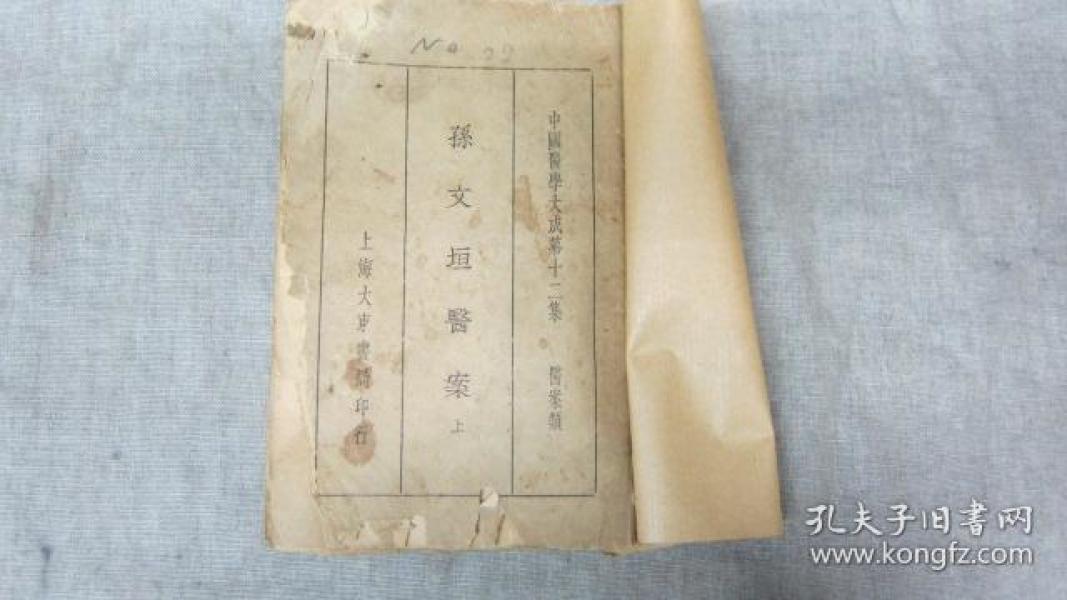 No 22
中國醫學大成第十二集 醫案類
孫文垣醫案 上
上海大東書局印行
孔夫子旧书网
www.kongfz.com